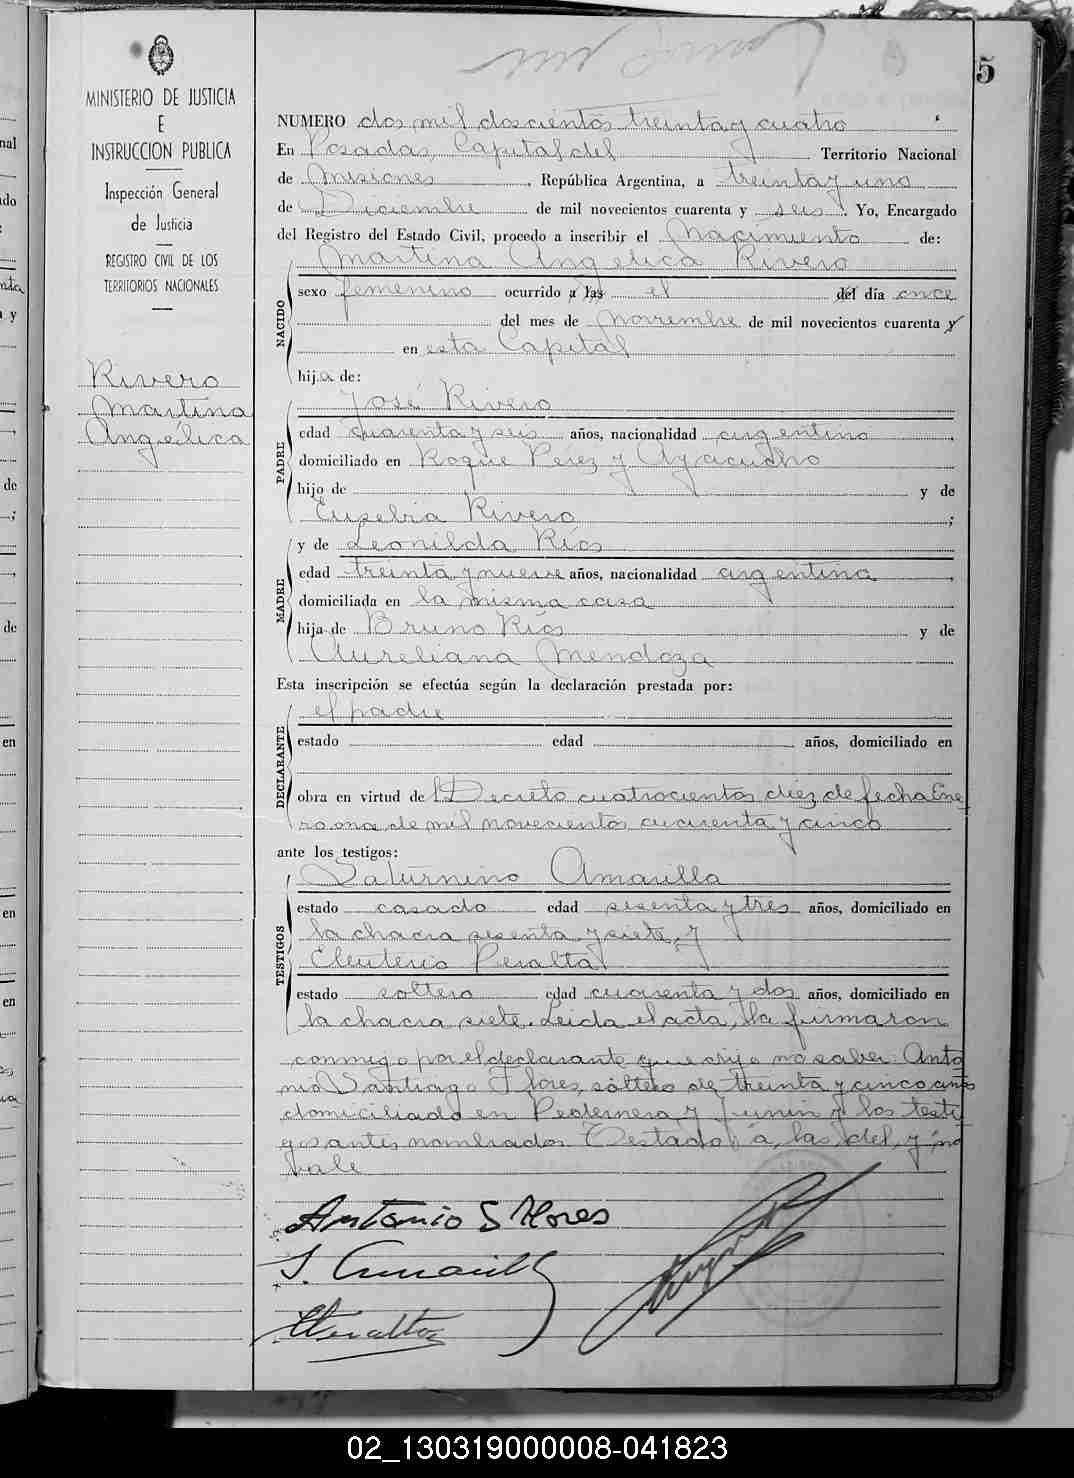 5
MINISTERIO DE JUSTICIA
E
INSTRUCCION PUBLICA
Inspección General
de Justicia
REGISTRO CIVIL DE LOS
TERRITORIOS NACIONALES
Rivero
Martina
Angélica
NUMERO dos mil doscientos treinta y cuatro
En Posadas, Capital del Territorio Nacional
de Misiones, República Argentina, a treinta y uno
de Diciembre de mil novecientos cuarenta y seis. Yo, Encargado
del Registro del Estado Civil, procedo a inscribir el Nacimiento de:
Martina Angelica Rivero
NACIDO
sexo femenino ocurrido a las el del día once
del mes de Noviembre de mil novecientos cuarenta y
en esta Capital
hija de:
José Rivero
PADRE
edad cuarenta y seis años, nacionalidad argentino,
domiciliado en Roque Perez y Ayacucho
hijo de y de
Eusebia Rivero;
y de Leonilda Ríos
MADRE
edad treinta y nueve años, nacionalidad argentina,
domiciliada en la misma casa
hija de Bruno Ríos y de
Aureliana Mendoza
Esta inscripción se efectúa según la declaración prestada por:
el padre
DECLARANTE
estado edad años, domiciliado en
obra en virtud del Decreto cuatrocientos diez de fecha Ene
ro once de mil novecientos cuarenta y cinco
ante los testigos:
Saturnino Amarilla
TESTIGOS
estado casado edad sesenta y tres años, domiciliado en
la chacra sesenta y siete, y
Eleuterio Peralta
estado soltero edad cuarenta y dos años, domiciliado en
la chacra siete. Leida el acta, la firmaron
conmigo por el declarante que dijo no saber: Anto
nio Santiago Flores, soltero de treinta y cinco años
domiciliado en Pedernera y Junin y los testi
gos antes nombrados. Testado: a, las, del, y no
vale
Antonio S Flores
S. Amarilla
EPeralta
02_130319000008-041823